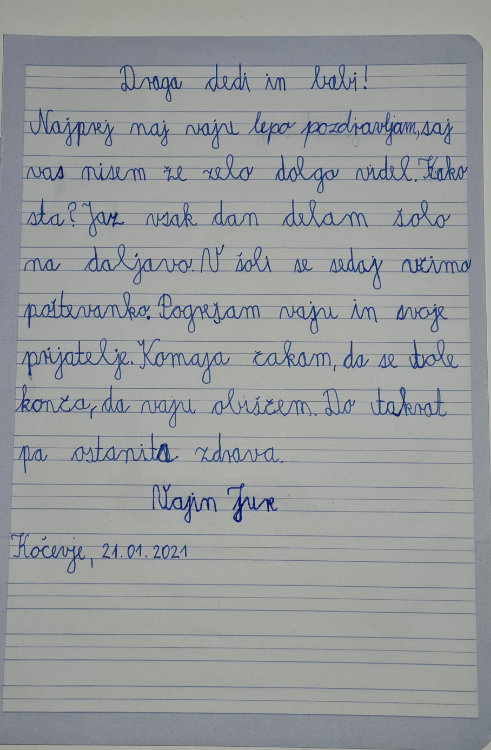 Draga dedi in babi!
Najprej naj vaju lepo pozdravljam, saj
vas nisem že zelo dolgo videl. Kako
sta? Jaz vsak dan delam šolo
na daljavo. V šoli se sedaj učimo
poštevanko. Pogrešam vaju in svoje
prijatelje. Komaj čakam, da se tole
konča, da vaju obiščem. Do takrat
pa ostanita zdrava.
Vajin Jure
Kočevje, 21.01.2021